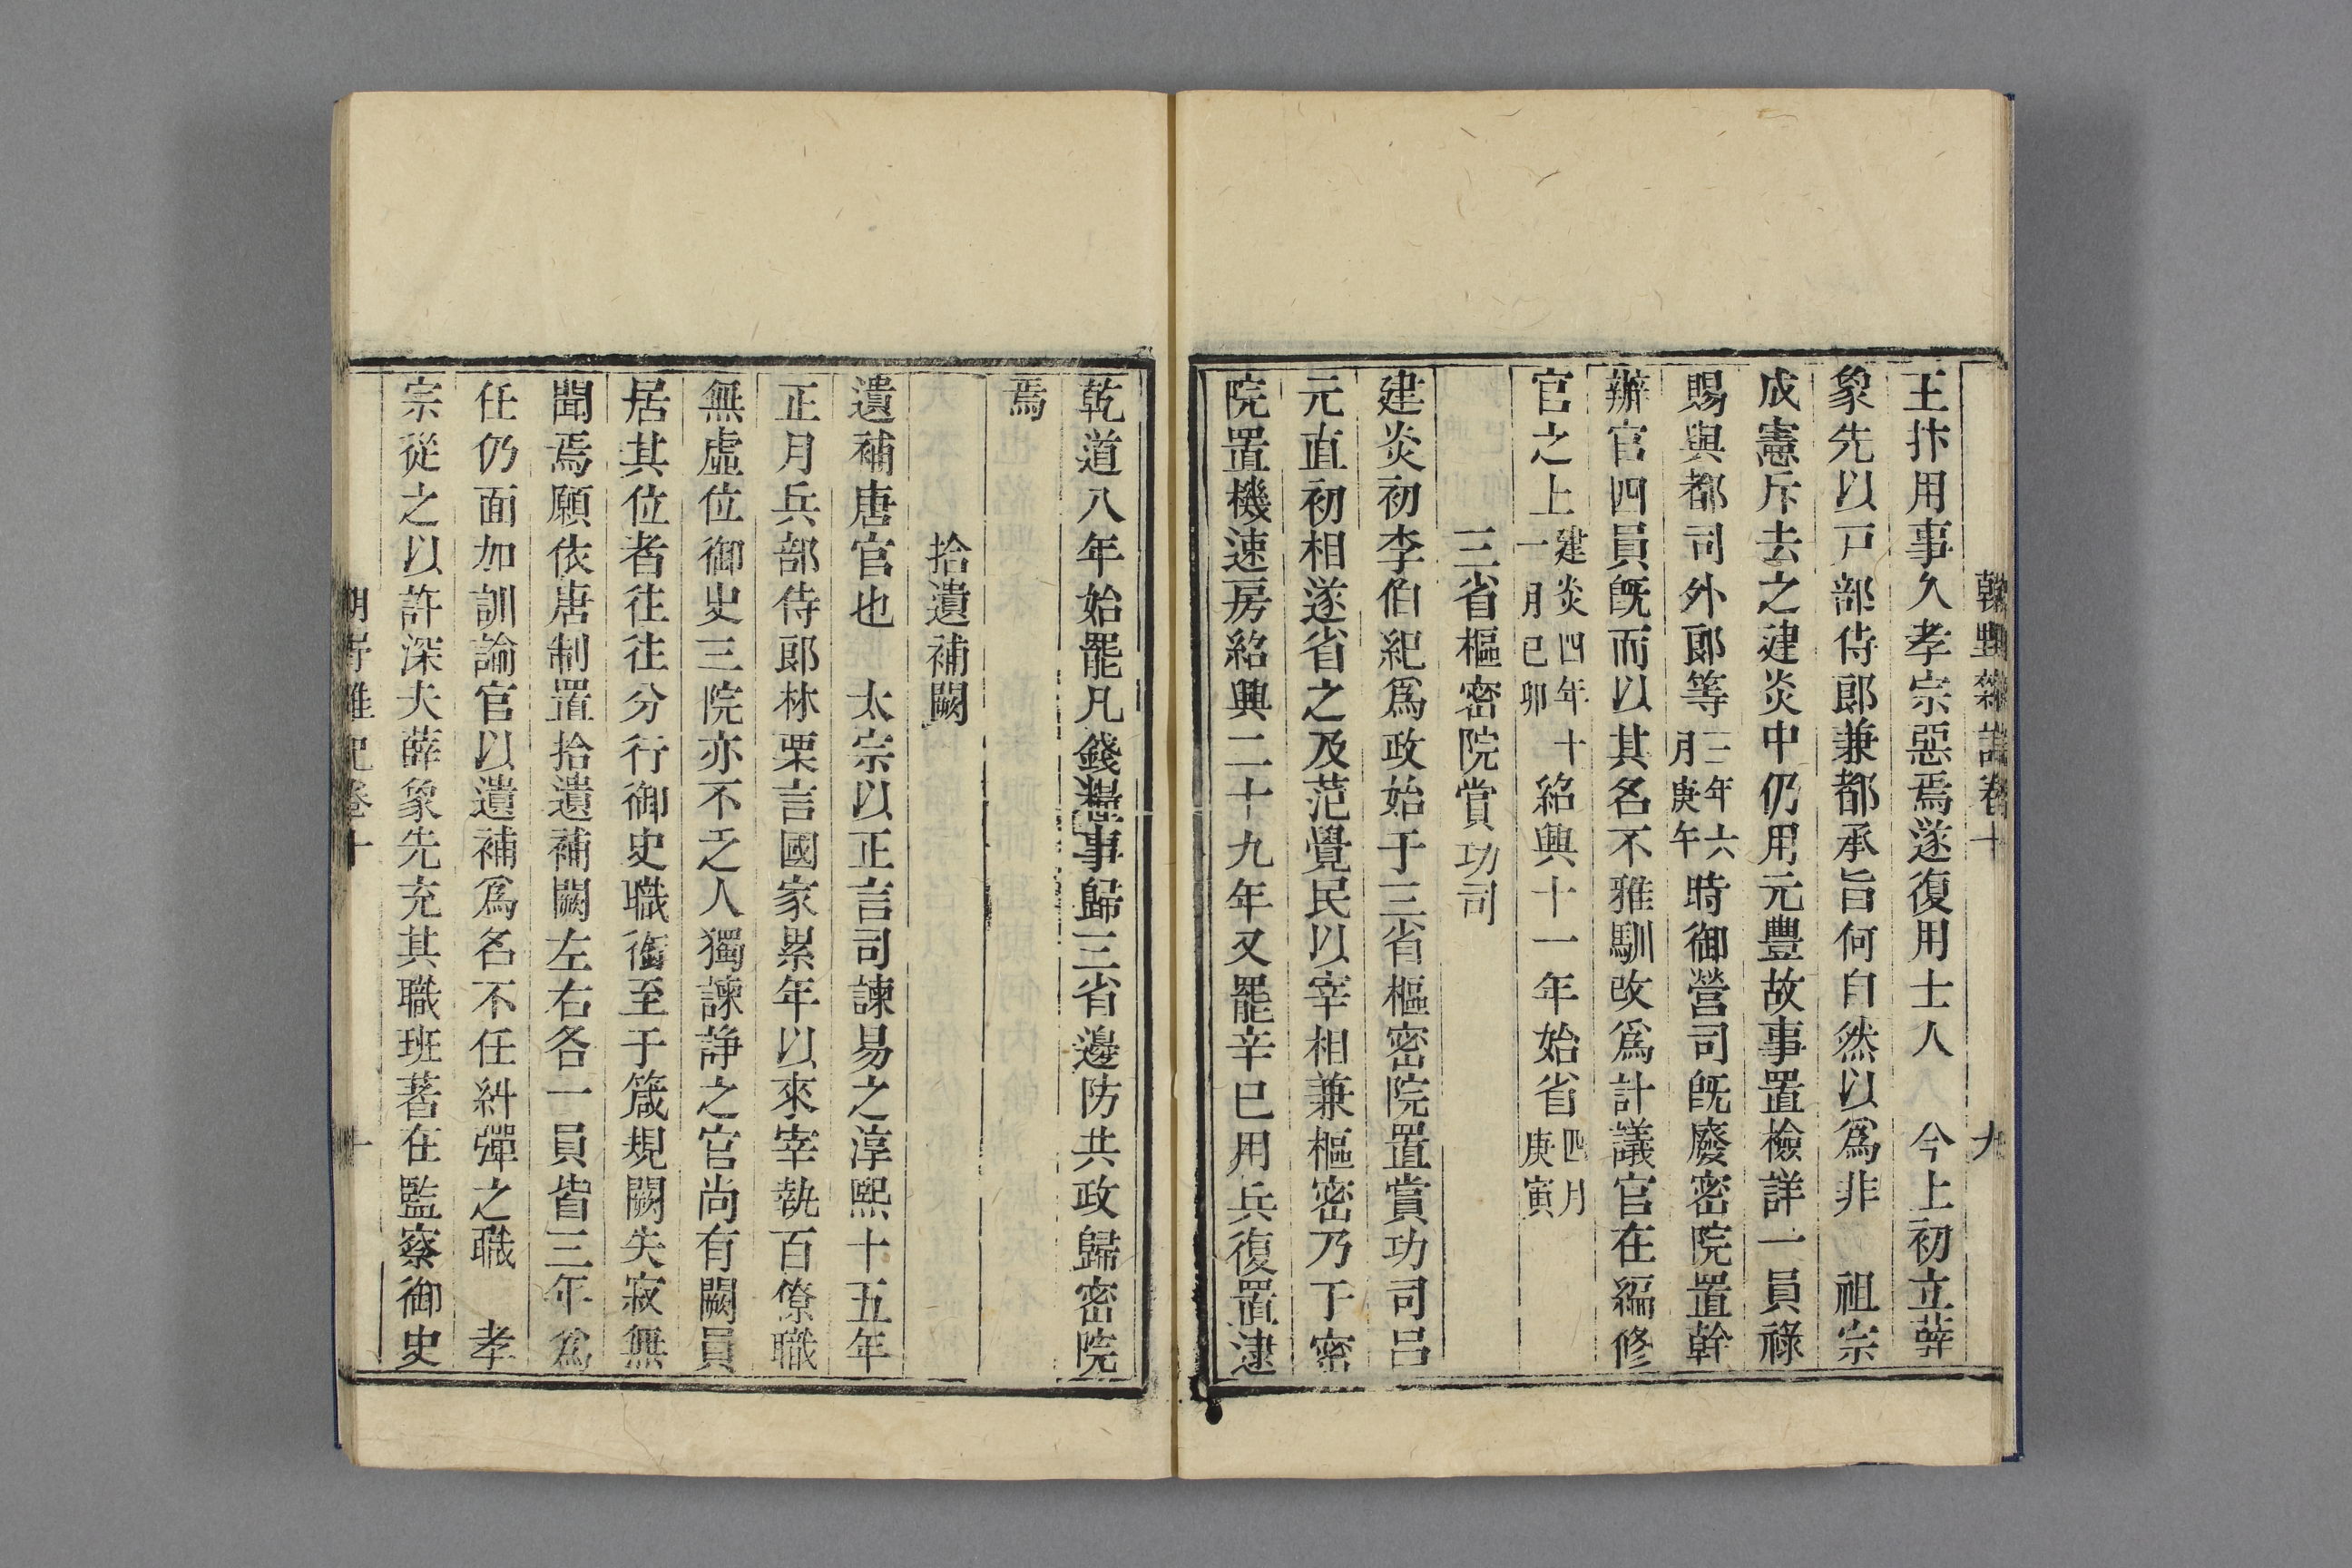 王抃用事久孝宗惡焉遂復用士人　今上初立薛
象先以戸部侍郎兼都承旨何自然以爲非　祖宗
成憲斥去之建炎中仍用元豐故事置檢詳一員祿
賜與都司外郎等三年六月庚午時御營司旣廢密院置幹
辦官四員旣而以其名不雅馴改爲計議官在編修
官之上建炎四年十一月己卯紹興十一年始省四月庚寅
三省樞密院賞功司
建炎初李伯紀爲政始于三省樞密院置賞功司呂
元直初相遂省之及范覺民以宰相兼樞密乃于密
院置機速房紹興二十九年又罷辛巳用兵復置逮
乾道八年始罷凡錢糧事歸三省邊防共政歸密院
焉
拾遺補闕
遺補唐官也　太宗以正言司諫易之淳熙十五年
正月兵部侍郎林栗言國家累年以來宰執百僚職
無虛位御史三院亦不乏人獨諫諍之官尚有闕員
居其位者往往分行御史職衘至于箴規闕失寂無
聞焉願依唐制置拾遺補闕左右各一員皆三年爲
任仍面加訓諭官以遺補爲名不任糾彈之職　孝
宗從之以許深夫薛象先充其職班著在監察御史
朝野雜記卷十
十